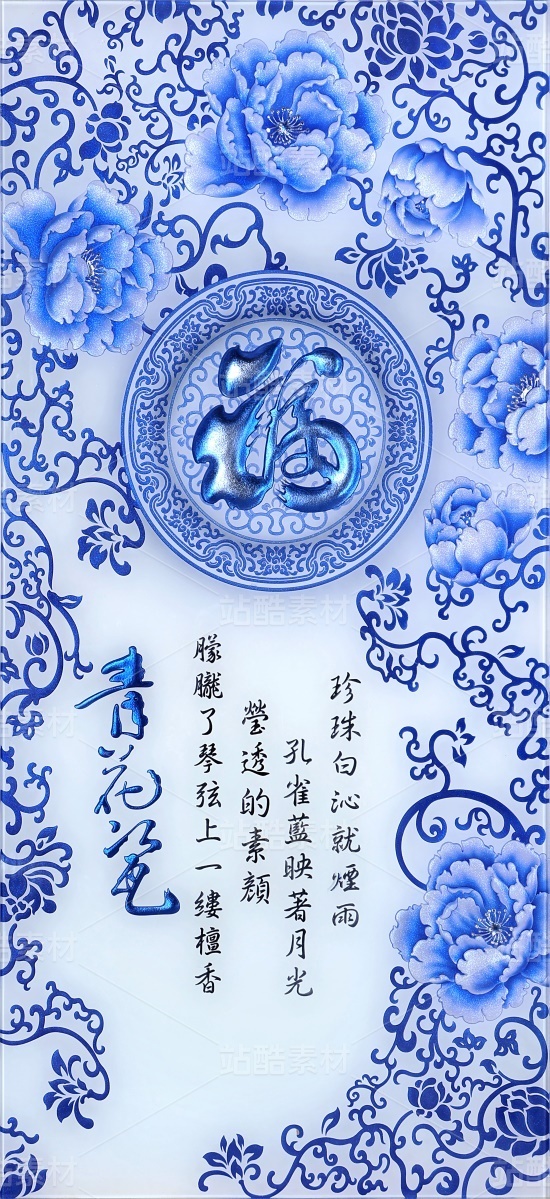 福
珍珠白沁就煙雨
孔雀藍映著月光
瑩透的素顏
朦朧了琴弦上一縷檀香
青花瓷
站酷素材